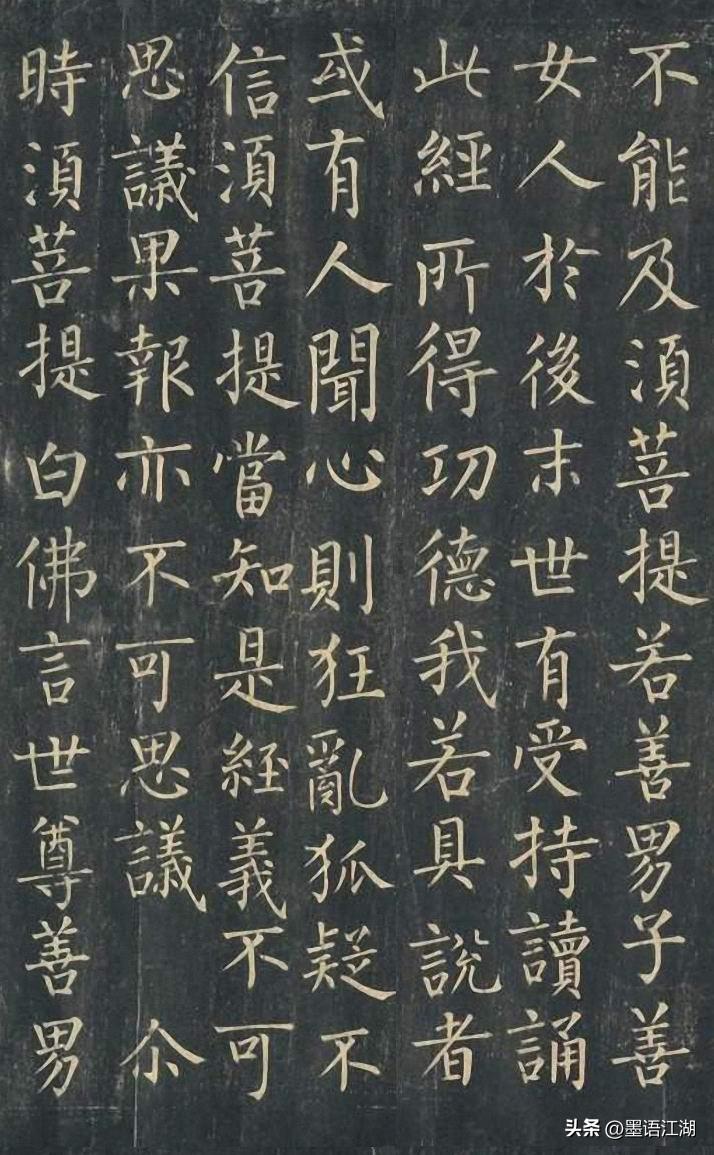 不能及須菩提若善男子善
女人於後末世有受持讀誦
此經所得功德我若具說者
或有人聞心則狂亂狐疑不
信須菩提當知是經義不可
思議果報亦不可思議 尒
時須菩提白佛言世尊善男
头条 @墨语江湖